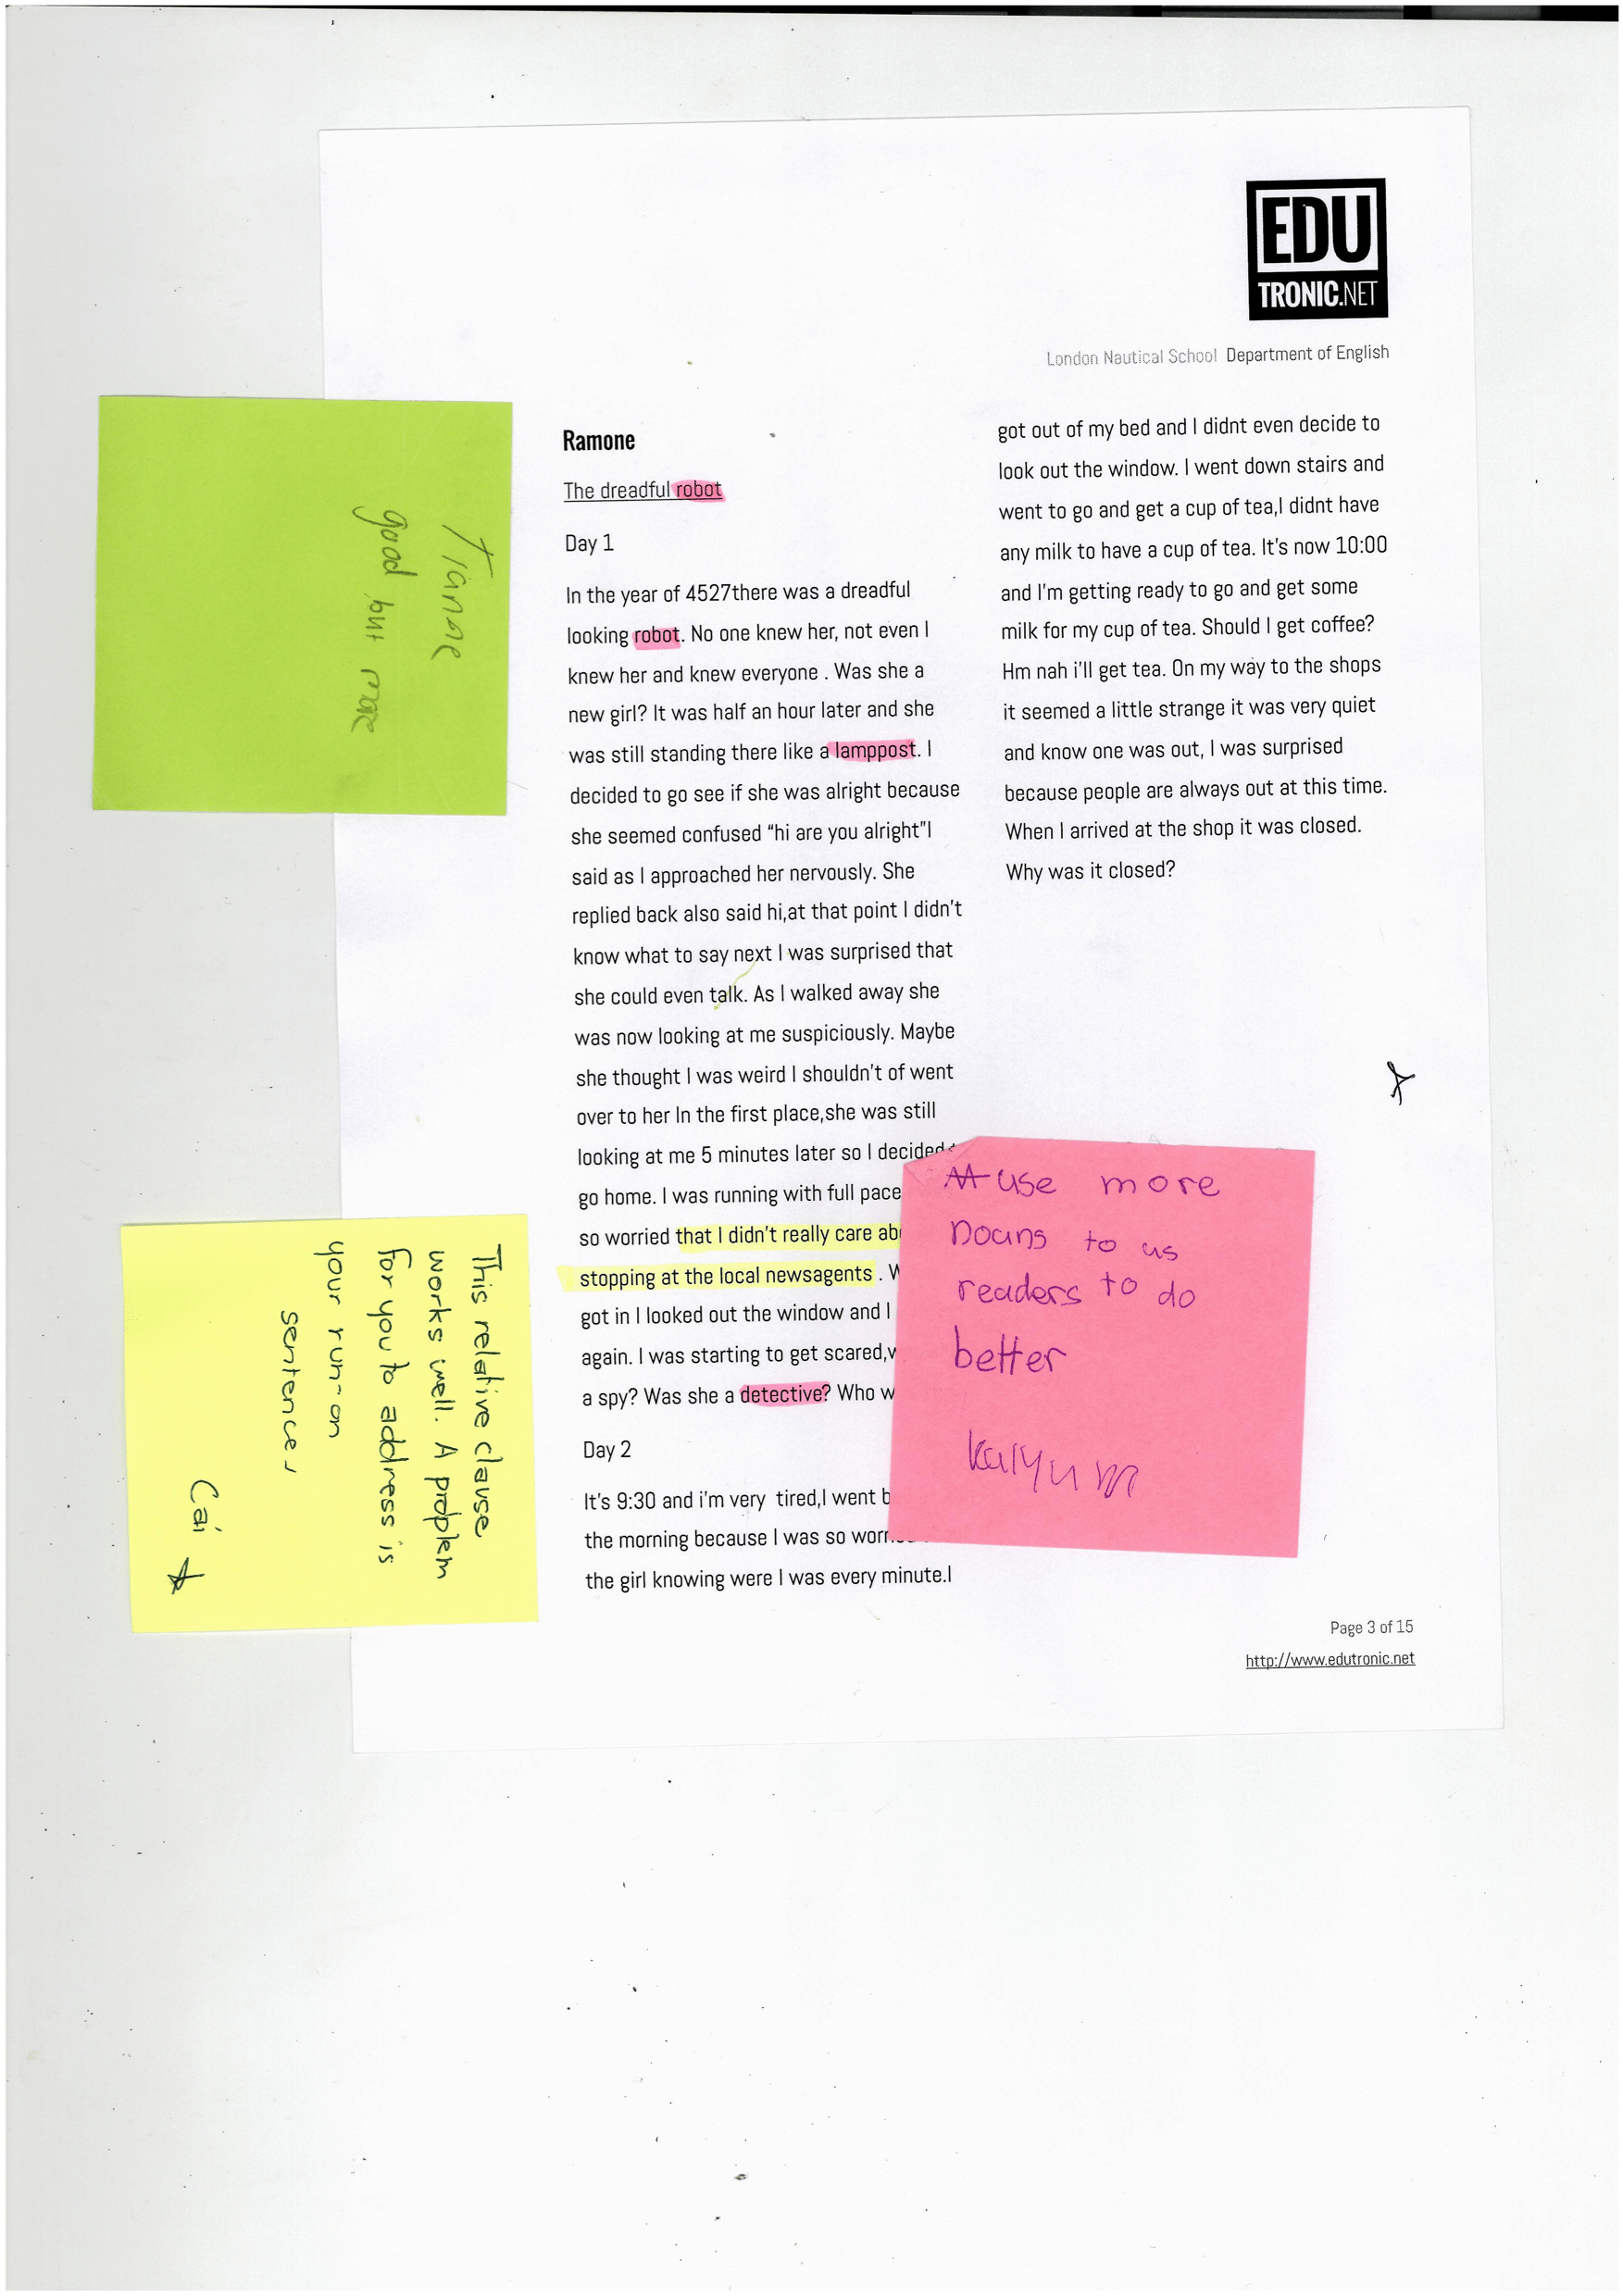 EDU
TRONIC.NET
London Nautical School Department of English
Ramone
The dreadful robot
Day 1
In the year of 4527there was a dreadful
looking robot. No one knew her, not even I
knew her and knew everyone . Was she a
new girl? It was half an hour later and she
was still standing there like a lamppost. I
decided to go see if she was alright because
she seemed confused “hi are you alright”I
said as I approached her nervously. She
replied back also said hi,at that point I didn't
know what to say next I was surprised that
she could even talk. As I walked away she
was now looking at me suspiciously. Maybe
she thought I was weird I shouldn't of went
over to her In the first place,she was still
looking at me 5 minutes later so I decided
go home. I was running with full pace
so worried that I didn't really care
stopping at the local newsagents .
got in I looked out the window and I
again. I was starting to get scared,
a spy? Was she a detective? Who
Day 2
It's 9:30 and i'm very tired,I went
the morning because I was so
the girl knowing were I was every minute.I
got out of my bed and I didnt even decide to
look out the window. I went down stairs and
went to go and get a cup of tea,I didnt have
any milk to have a cup of tea. It's now 10:00
and I'm getting ready to go and get some
milk for my cup of tea. Should I get coffee?
Hm nah i'll get tea. On my way to the shops
it seemed a little strange it was very quiet
and know one was out, I was surprised
because people are always out at this time.
When I arrived at the shop it was closed.
Why was it closed?
good but
This relative clause
works well. A problem
for you to address is
your run-on
sentence,
Cai
use more
nouns to us
readers to do
better
Kalyum
Page 3 of 15
http://www.edutronic.net